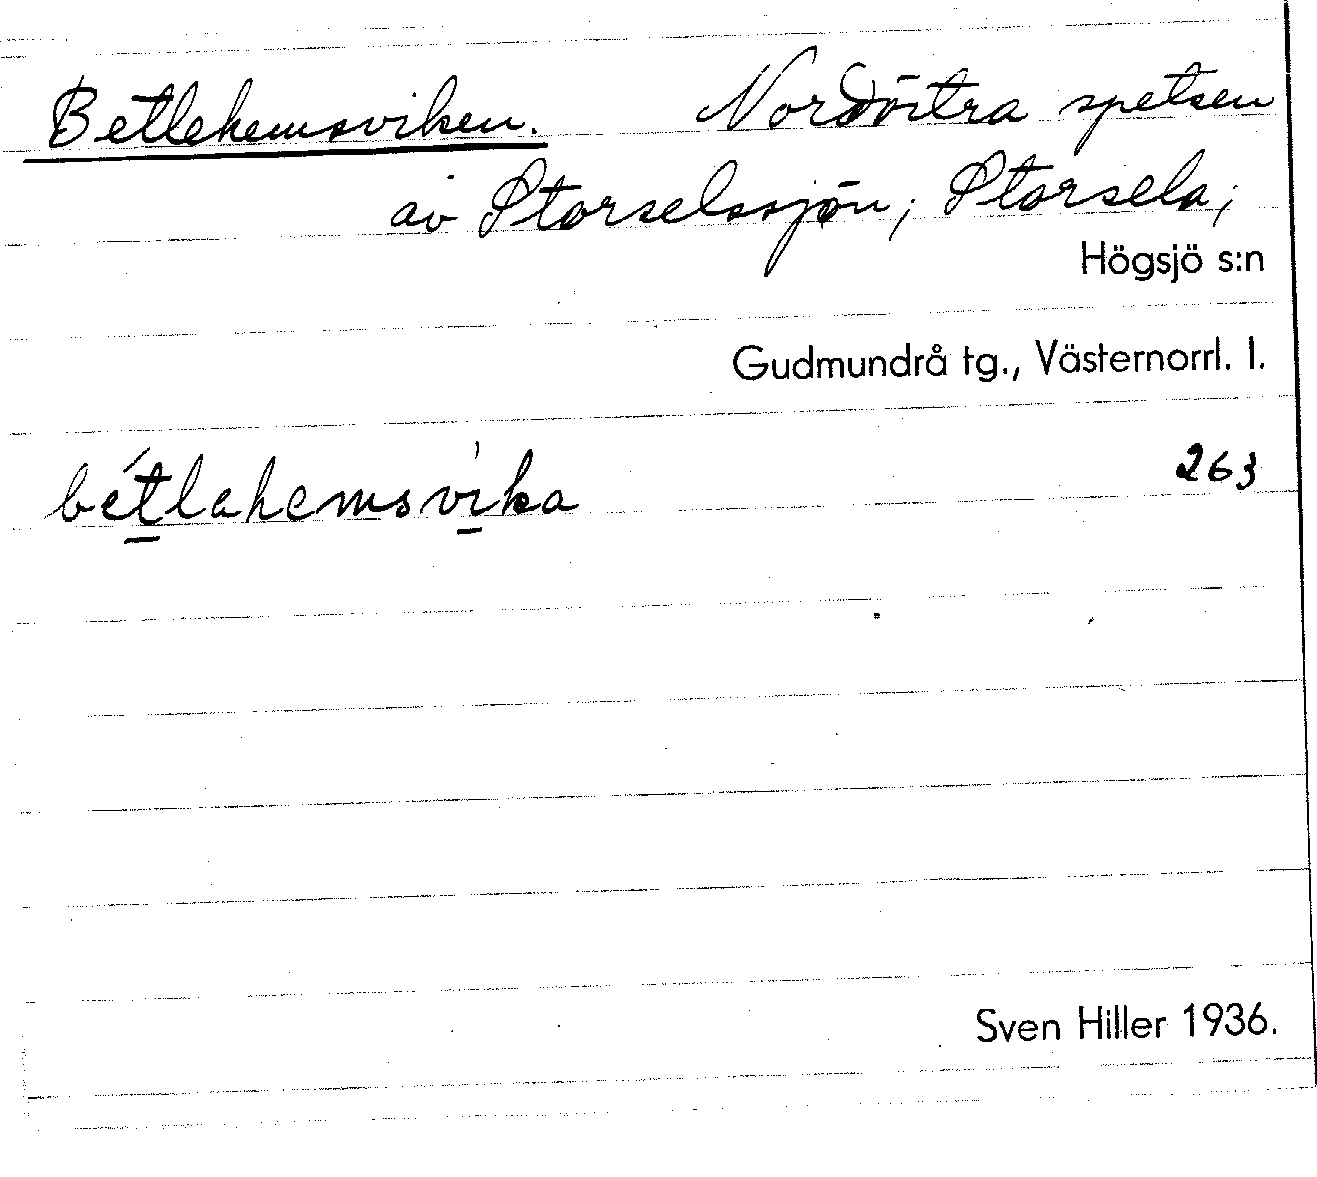 Betlehemsviken. Nordöstra spetsen
av Storselssjön; Storsela;
Högsjö s:n
Gudmundrå tg., Västernorrl. l.
bétlahemsvìka 263
Sven Hiller 1936.